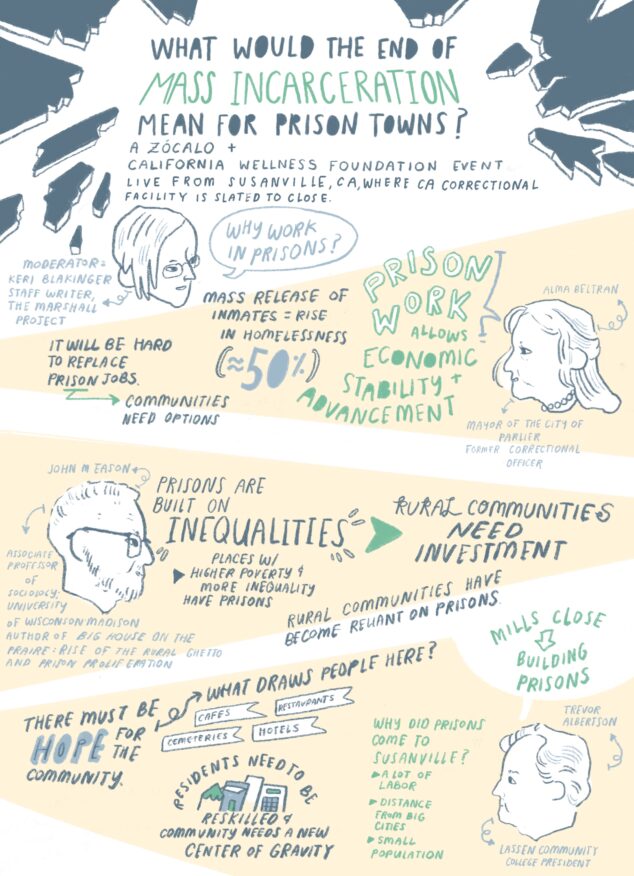 WHAT WOULD THE END OF
MASS INCARCERATION
MEAN FOR PRISON TOWNS?
A ZÓCALO +
CALIFORNIA WELLNESS FOUNDATION EVENT
LIVE FROM SUSANVILLE, CA, WHERE CA CORRECTIONAL
FACILITY IS SLATED TO CLOSE.
MODERATOR:
KERI BLAKINGER
STAFF WRITER,
THE MARSHALL
PROJECT
WHY WORK
IN PRISONS?
MASS RELEASE OF
INMATES = RISE
IN HOMELESSNESS
(≈50%)
IT WILL BE HARD
TO REPLACE
PRISON JOBS.
COMMUNITIES
NEED OPTIONS
PRISON
WORK
ALLOWS
ECONOMIC
STABILITY +
ADVANCEMENT
ALMA BELTRAN
MAYOR OF THE CITY OF
PARLIER
FORMER CORRECTIONAL
OFFICER
JOHN M EASON
ASSOCIATE
PROFESSOR
OF
SOCIOLOGY,
UNIVERSITY
OF WISCONSON MADISON
AUTHOR OF BIG HOUSE ON THE
PRAIRE: RISE OF THE RURAL GHETTO
AND PRISON PROLIFERATION
PRISONS ARE
BUILT ON
INEQUALITIES
PLACES W/
HIGHER POVERTY &
MORE INEQUALITY
HAVE PRISONS
RURAL COMMUNITIES
NEED
INVESTMENT
RURAL COMMUNITIES HAVE
BECOME RELIANT ON PRISONS.
MILLS CLOSE
BUILDING
PRISONS
THERE MUST BE
HOPE FOR
THE
COMMUNITY.
WHAT DRAWS PEOPLE HERE?
CAFÉS
RESTAURANTS
CEMETERIES
HOTELS
RESIDENTS NEED TO BE
RESKILLED &
COMMUNITY NEEDS A NEW
CENTER OF GRAVITY
WHY DID PRISONS
COME TO
SUSANVILLE?
A LOT OF
LABOR
DISTANCE
FROM BIG
CITIES
SMALL
POPULATION
TREVOR
ALBERTSON
LASSEN COMMUNITY
COLLEGE PRESIDENT